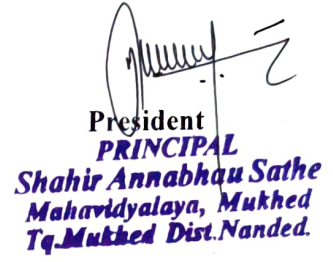 President
PRINCIPAL
Shahir Annabhau Sathe
Mahavidyalaya, Mukhed
Tq.Mukhed Dist.Nanded.